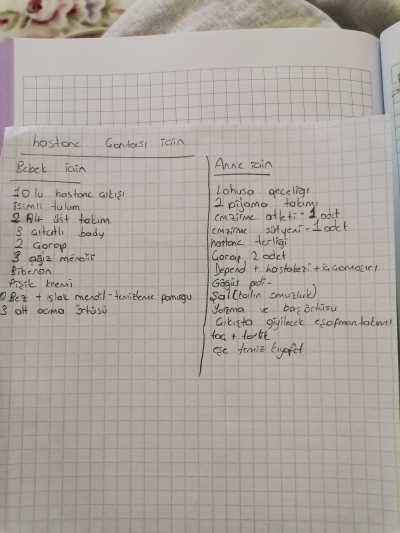 hastane Çantası için
Bebek için
10 lu hastane çıkışı
isimli tulum
2 Alt üst takım
3 çıtçıtlı body
2 Çorap
3 ağız mendili
Biberon
Pişik kremi
Bez + ıslak mendil - temizleme pamuğu
3 alt açma örtüsü
Anne için
Lohusa geceliği
2 pijama takımı
emzirme atleti - 1 adet
emzirme sütyeni - 1 adet
hastane terliği
Çorap 2 adet
Depend + hastabezi + iç çamaşırı
Göğüs pedi -
Şal (tailin omuzluk)
Yazma ve başörtüsü
Çıkışta giyilecek eşofman takımı
taç + terlik
eşe temiz kıyafet